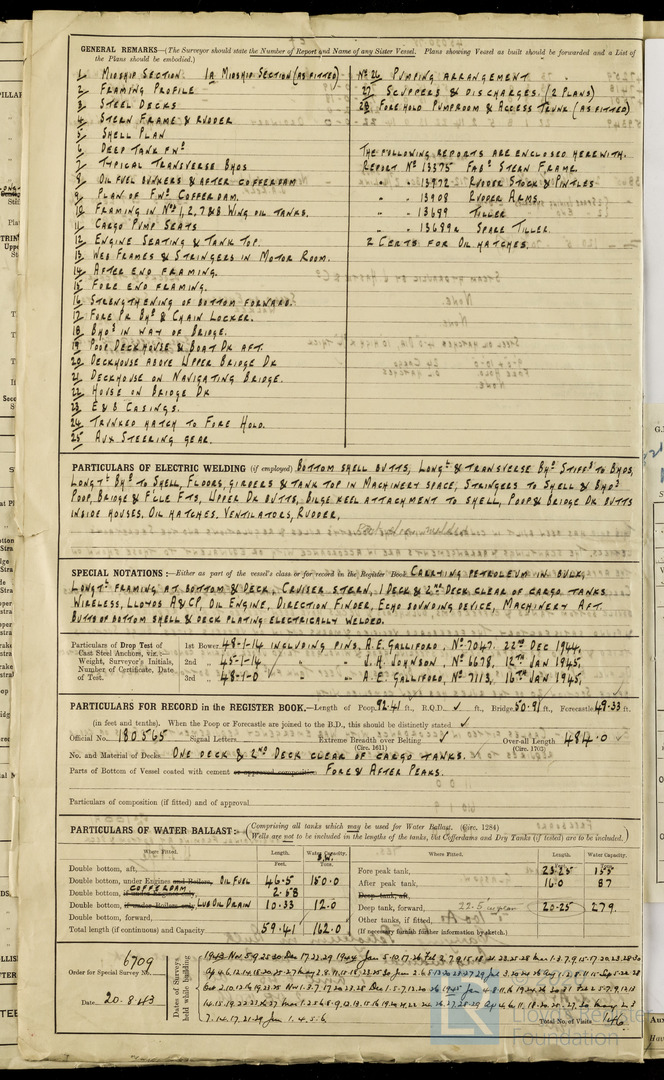 GENERAL REMARKS—(The Surveyor should state the Number of Report and Name of any Sister Vessel. Plans showing Vessel as built should be forwarded and a List of
the Plans should be embodied.)
1 MIDSHIP SECTION. 1A MIDSHIP SECTION (AS FITTED)
2 FRAMING PROFILE
3 STEEL DECKS
4 STERN FRAME & RUDDER
5 SHELL PLAN
6 DEEP TANK FWD
7 TYPICAL TRANSVERSE BHDS
8 OIL FUEL BUNKERS & AFTER COFFERDAM
9 PLAN OF FWD COFFERDAM.
10 FRAMING IN Nos 1, 2, 7 & 8 WING OIL TANKS.
11 CARGO PUMP SEATS
12 ENGINE SEATING & TANK TOP.
13 WEB FRAMES & STRINGERS IN MOTOR ROOM.
14 AFTER END FRAMING.
15 FORE END FRAMING.
16 STRENGTHENING OF BOTTOM FORWARD.
17 FORE PK BHD & CHAIN LOCKER.
18 BHDS IN WAY OF BRIDGE.
19 POOP DECKHOUSE & BOAT DK AFT.
20 DECKHOUSE ABOVE UPPER BRIDGE DK
21 DECKHOUSE ON NAVIGATING BRIDGE.
22 HOUSE ON BRIDGE DK
23 E & B CASINGS.
24 TRUNKED HATCH TO FORE HOLD.
25 AUX STEERING GEAR.
No 26 PUMPING ARRANGEMENT
27 SCUPPERS & DISCHARGES. (2 PLANS)
28 FORE HOLD PUMPROOM & ACCESS TRUNK (AS FITTED)
THE FOLLOWING REPORTS ARE ENCLOSED HEREWITH.
REPORT No 13375 FABD STERN FRAME
" " 13972 RUDDER STOCK & PINTLES
" " 13908 RUDDER ARMS.
" " 13689 TILLER
" " 13689A SPARE TILLER.
2 CERTS FOR OIL HATCHES.
PARTICULARS OF ELECTRIC WELDING (if employed) BOTTOM SHELL BUTTS, LONGL & TRANSVERSE BHD STIFFS TO BHDS,
LONGL BHDS TO SHELL, FLOORS, GIRDERS & TANK TOP IN MACHINERY SPACE, STRINGERS TO SHELL & BHDS
POOP, BRIDGE & F'CLE FTS, UPPER DK BUTTS, BILGE KEEL ATTACHMENT TO SHELL, POOP & BRIDGE DK BUTTS
INSIDE HOUSES. OIL HATCHES. VENTILATORS, RUDDER.
SPECIAL NOTATIONS:—Either as part of the vessel's class or for record in the Register Book CARRYING PETROLEUM IN BULK,
LONGL FRAMING AT BOTTOM & DECK, CRUISER STERN, 1 DECK & 2ND DECK CLEAR OF CARGO TANKS
WIRELESS, LLOYDS A & CP, OIL ENGINE, DIRECTION FINDER, ECHO SOUNDING DEVICE, MACHINERY AFT.
BUTTS OF BOTTOM SHELL & DECK PLATING ELECTRICALLY WELDED.
Particulars of Drop Test of Cast Steel Anchors, viz.:— Weight, Surveyor's Initials, Number of Certificate, Date of Test.
1st Bower 48-1-14 INCLUDING PINS, A.E. GALLIFORD, No 7047. 22ND DEC 1944,
2nd " 45-1-14 " " J.H. JOHNSON, No 6678, 12TH JAN 1945,
3rd " 48-1-0 " " A.E. GALLIFORD, No 7113, 16TH JAN 1945,
PARTICULARS FOR RECORD in the REGISTER BOOK.—Length of Poop 92.41 ft., R.Q.D. ✓ ft., Bridge 50.91 ft., Forecastle 49.33 ft.
(in feet and tenths). When the Poop or Forecastle are joined to the B.D., this should be distinctly stated ✓
Official No. 180565 Signal Letters Extreme Breadth over Belting ✓ (Circ. 1611) Over-all Length 484.0 (Circ. 1703)
No. and Material of Decks ONE DECK & 2ND DECK CLEAR OF CARGO TANKS.
Parts of Bottom of Vessel coated with cement or approved composition FORE & AFTER PEAKS.
Particulars of composition (if fitted) and of approval
PARTICULARS OF WATER BALLAST:— (Comprising all tanks which may be used for Water Ballast. (Circ. 1284)
Wells are not to be included in the lengths of the tanks, but Cofferdams and Dry Tanks (if tested) are to be included.)
Where Fitted. Length. Feet. Water Capacity. Tons.
Double bottom, aft,
Double bottom, under Engines and Boilers, OIL FUEL 46.5 150.0
Double bottom, if under Engines only, COFFERDAM 2.58
Double bottom, if under Boilers only, LUB OIL DRAIN 10.33 12.0
Double bottom, forward,
Total length (if continuous) and Capacity 59.41 162.0
Where Fitted. Length. Feet. Water Capacity. Tons.
Fore peak tank, 23.25 155
After peak tank, 16.0 87
Deep tank, aft,
Deep tank, forward, 22.5 in plan 20.25 279.
Other tanks, if fitted,
(If necessary furnish further information by sketch).
Order for Special Survey No. 6709
Date 20.8.43
Dates of Surveys held while building
Total No. of Visits 146
Lloyd's Register
Foundation